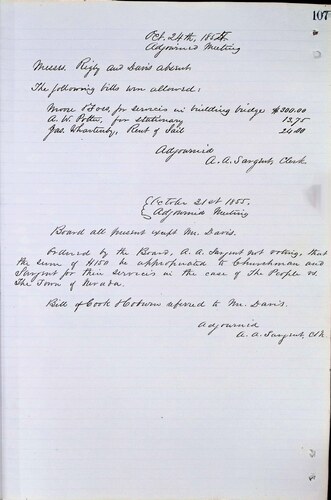 107
Oct. 24th, 1855.
Adjourned Meeting
Messrs. Rigby and Davis absent
The following bills were allowed:
for services in building bridge $300.00
A. W. Potter, for stationary 13,75
Jas. Whartenby, Rent of Jail 24.00
Adjourned
A. A. Sargent, Clerk
October 21st 1855.
Adjourned Meeting
Board all present except Mr. Davis.
Ordered by the Board, A. A. Sargent not voting, that
the sum of $150 be appropriated to Churchman and
Sargent for their services in the case of The People vs.
The Town of Nevada.
Bill of Cook & referred to Mr. Davis.
Adjourned
A. A. Sargent, Clk